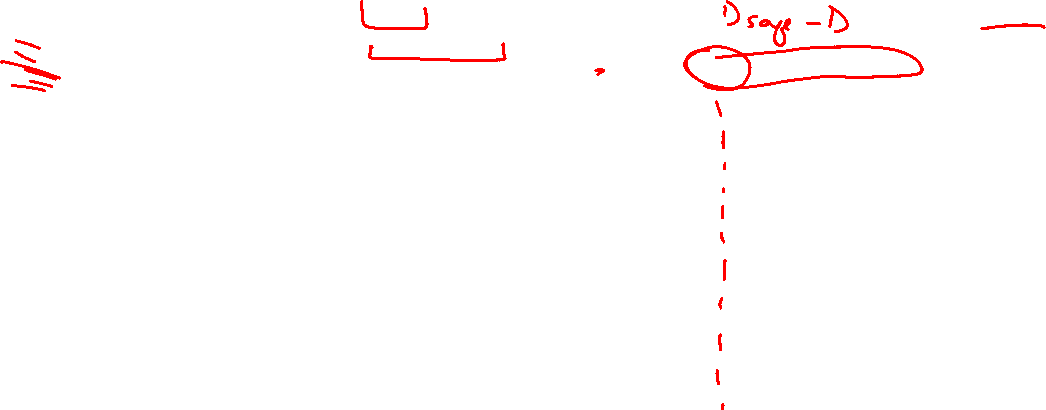 Dsage - D